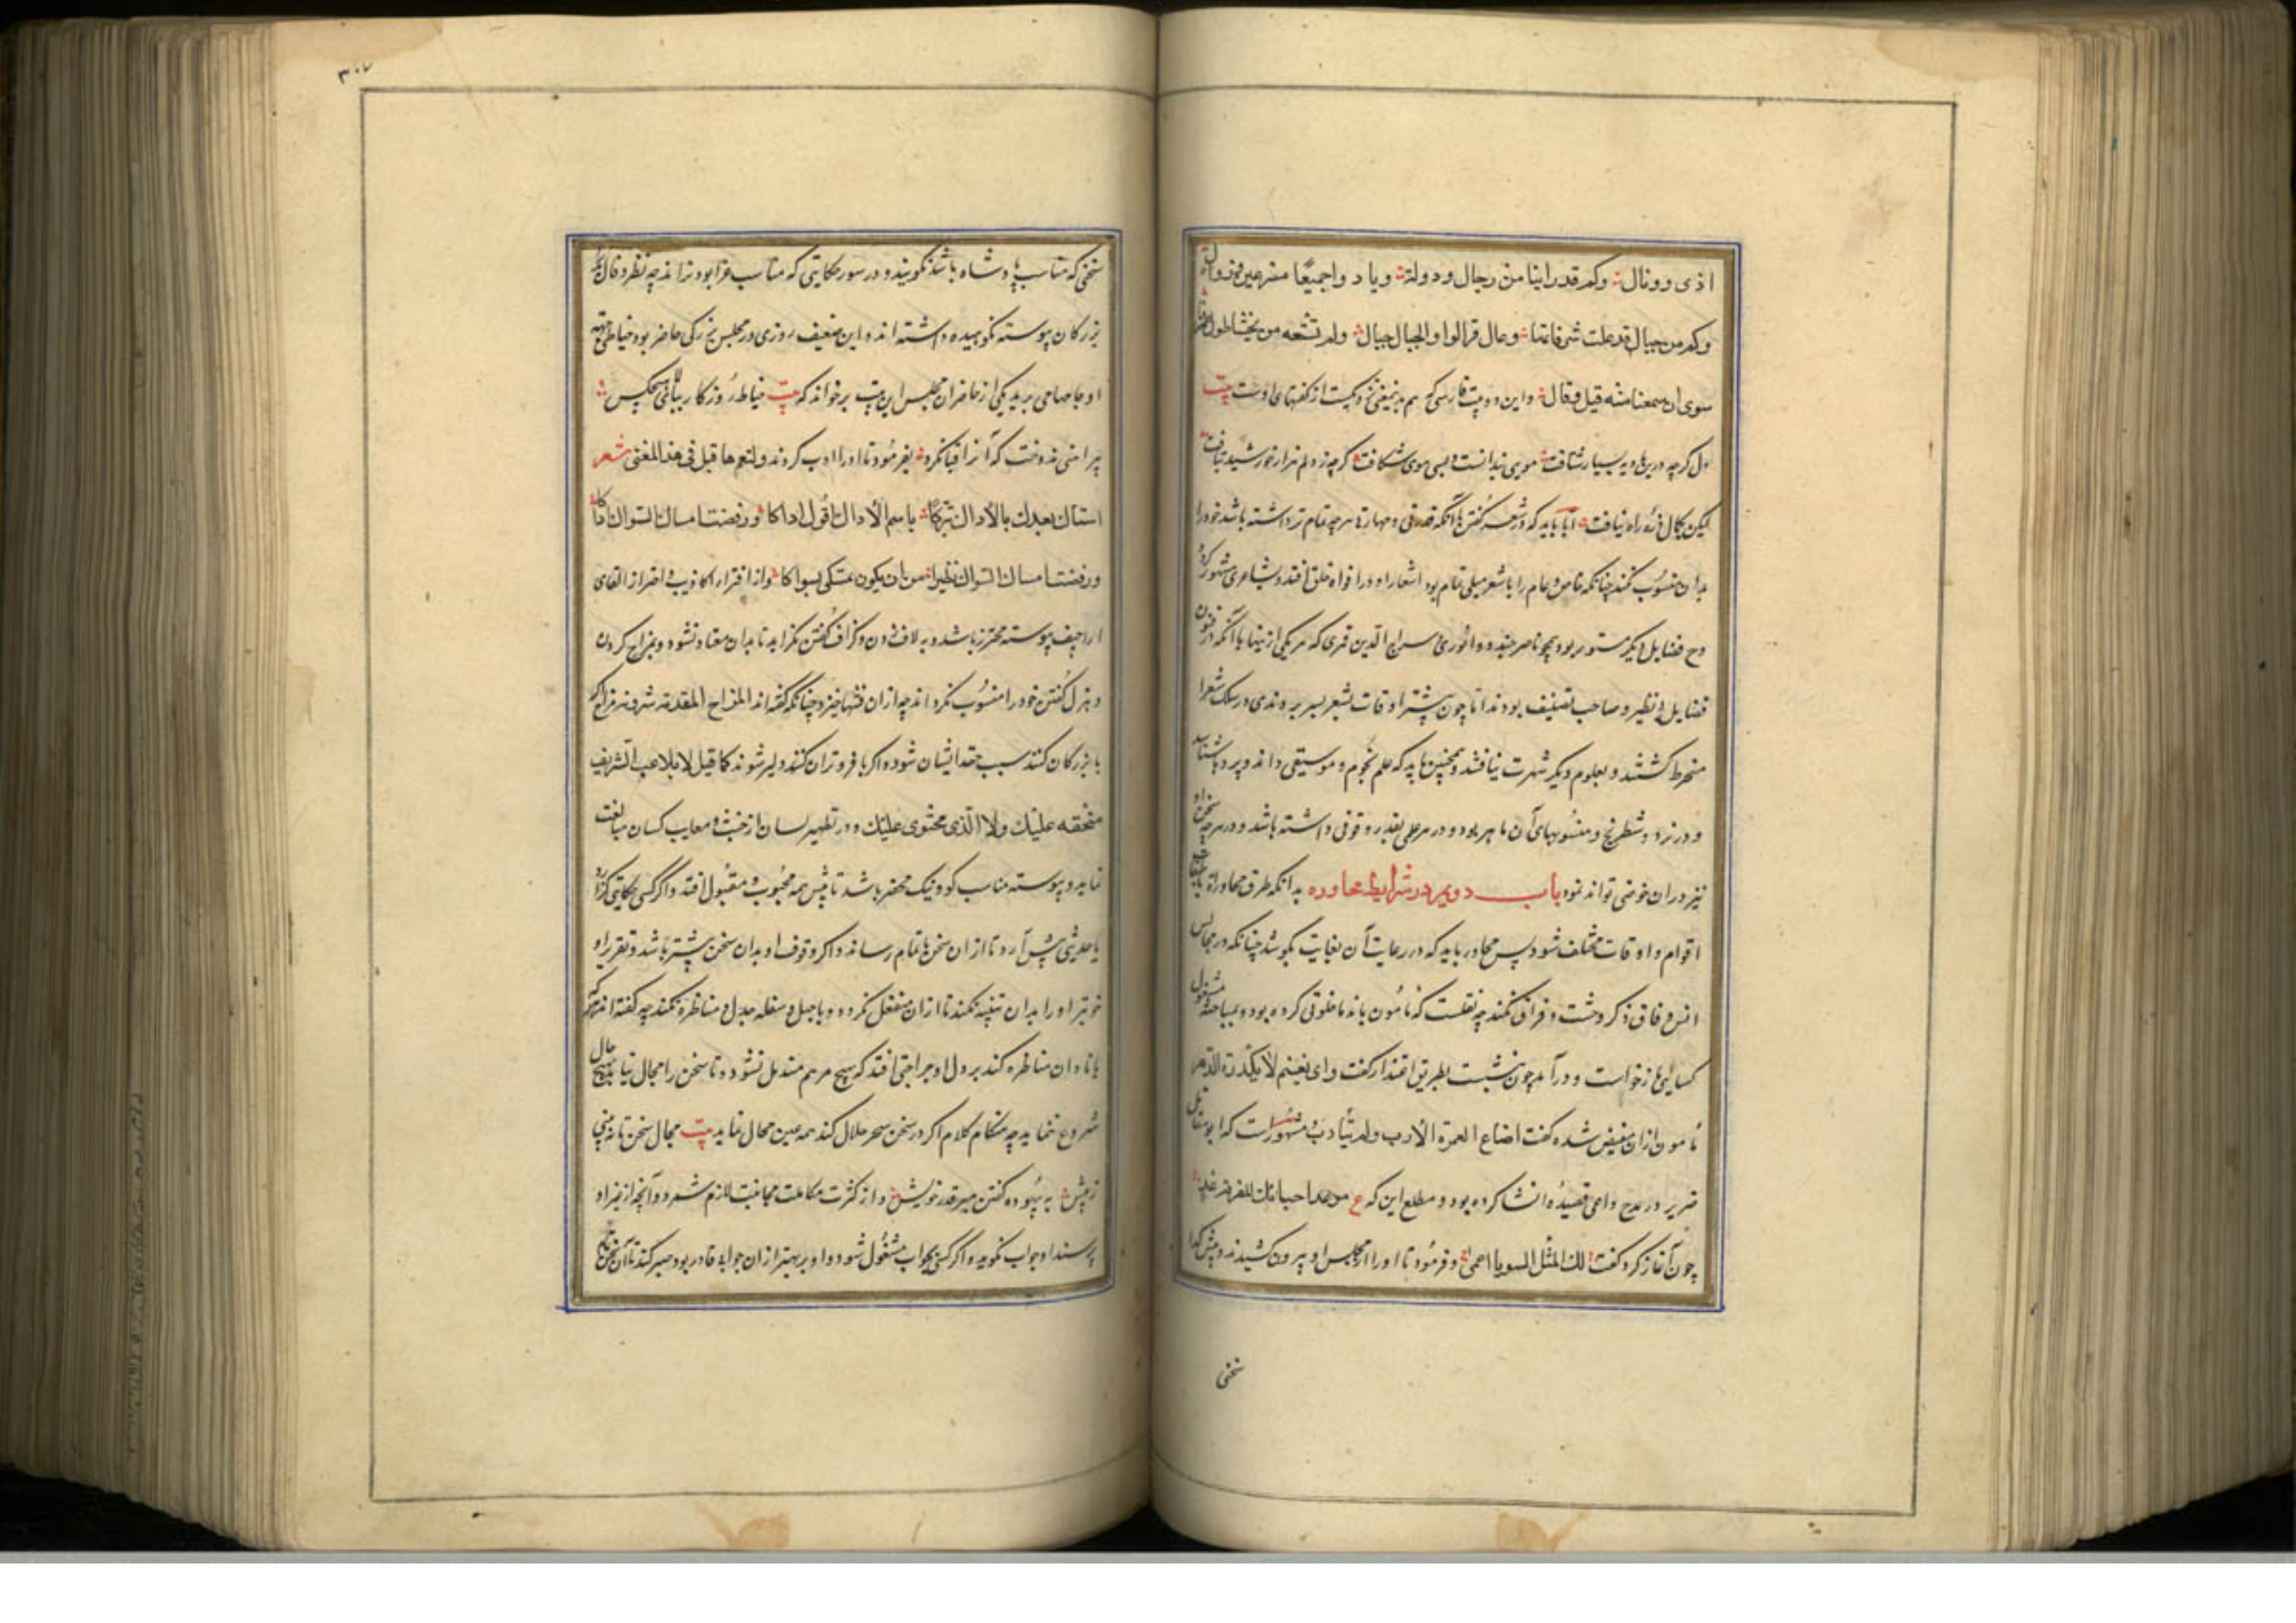 اذی و وبال وکم قد راینا من رجال و دولة و بادوا جمیعا مسرعین و زالوا
وکم من جبال قد علت شرفاتها رجال فزالوا و الجبال جبال ولم نستفد من بحثنا طول عمرنا
سوی ان جمعنا فیه قیل و قال و این دو بیت فارسی که هم بدین معنی نزدیکست از گفتهای اوست بیت
دل گرچه درین بادیه بسیار شتافت مویی ندانست و بسی موی شکافت گرچه ز دلم هزار خورشید بتافت
لیکن بکمال ذره راه نیافت اما باید که در شعر گفتن با آنکه قدرتی و مهارتی هرچه تمام‌تر داشته باشد خود را
بدان منسوب نکند چنانکه خاص و عام را با شعر میلی تمام بود اشعار او در افواه خلق افتد و بشاعری مشهور گردد
و دیگر فضایل مستور بود همچو ناصر خسرو و انوری و سراج الدین قمری که هر یکی ازینها با آنکه در فنون
فضایل بی‌نظیر و صاحب تصنیف بودند اما چون بیشتر اوقات بشعر بسر بردندی در سلک شعرا
منخرط گشتند و بعلوم دیگر شهرت نیافتند و همچنین باید که علم نجوم و موسیقی داند و پرده‌ها شناسد
و در نرد و شطرنج و منسوبهای آن ماهر بود و در هر علمی بقدر وقوفی داشته باشد و در هرچه سخن رود
نیز در ان خوضی تواند نمود باب دویم در شرایط محاوره بدانکه طرق محاوراة باختلاف
اقوام و اوقات مختلف شود پس محاور باید که در رعایت آن بغایت بکوشد چنانکه در مجالس
انس و وفاق ذکر وحشت و فراق نکند چه نقلست که مأمون با ندما خلوتی کرده بود و بمباحثه مشغول
کسائی بار خواست و درآمد چون بنشست بطریق اعتذار گفت و ای نعیم لا یکدره الدهر
مأمون ازان منغص شده گفت اضاع العمر فی الادب ولم یتأدب مشهورست که ابو مقاتل
ضریر در مدح داعی قصیده انشا کرده بود و مطلع این که ع موعد احبابک للفرقة غد
چون آغاز کرد گفت لک المثل السوء یا اعمی و فرمود تا او را از مجلس او بیرون کشیدند و پیش گدا
سخنی
۳۰۷
سخنی که مناسب پادشاه باشد نگویند و در سور حکایتی که مناسب عزا بود نراند چه تطیر و فال را
بزرگان پیوسته نکوهیده داشته‌اند و این ضعیف روزی در مجلس بزرگی حاضر بود خیاطی جهة
او جامها می برید یکی از حاضران مجلس این بیت برخواند که بیت خیاط روزگار ببالای هیچکس
پیراهنی ندوخت که آنرا قبا نکرد بفرمود تا او را ادب کردند و لنعم ما قیل فی هذا المعنی شعر
استاک بعدک بالاراک تبرکا باسم الاراک اقول اراکا و رفضت مساک السواک
و رفضت مساک السواک تطیرا من ان یکون تمسکی بسواکا و از افترا و اکاذیب و احتراز از القای
اراجیف پیوسته محترز باشد و به لاف زدن و گزاف گفتن نگراید تا بدان معتاد نشود و بمزاح کردن
و هزل گفتن خود را منسوب نگرداند چه ازان فتنها خیزد چنانکه گفته‌اند المزاح مقدمة الشر و مزاح اگر
با بزرگان کنند سبب حقد ایشان شود و اگر با فروتران کنند دلیر شوند کما قیل لا تلاعب الشریف
فیحقد علیک ولا الدنی فیجتری علیک و در تطهیر لسان از خبث و معایب کسان مبالغت
نماید و پیوسته مناسب گو و نیک محضر باشد تا پیش همه محبوب و مقبول افتد و اگر کسی حکایتی گزارد
یا حدیثی پیش آرد تا ازان سخن بتمام رساند و اگر وقوف او بدان سخن بیشتر باشد و تقریر او
خوبتر او را بدان تنبیه نکند تا ازان منفعل نگردد و با جهل و سفله جدل و مناظره نکند چه گفته‌اند هر که
با نادان مناظره کند بر دل او جراحتی افتد که بهیچ مرهم مندمل نشود و تا سخن را مجال نیابد بهیچ حال
شروع ننماید چه هنگام کلام اگر در سخن سحر حلال کند همه عین محال نماید بیت مجال سخن تا نبینی
ز پیش به بیهوده گفتن مبر قدر خویش و از کثرت مکالمت مجانبت لازم شمرد و آنچه از غیر او
پرسند او جواب نگوید و اگر کسی بجواب مشغول شود و او بر بهتر ازان جواب قادر بود صبر کند تا آن سخن تمام